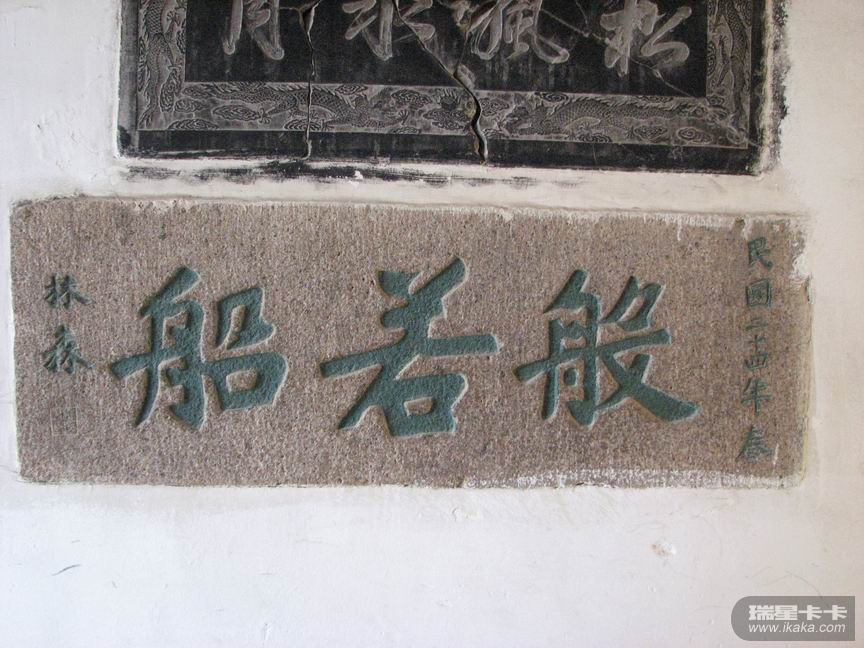 松風水月
民國二十四年春
般若船
林森
瑞星卡卡
www.ikaka.com